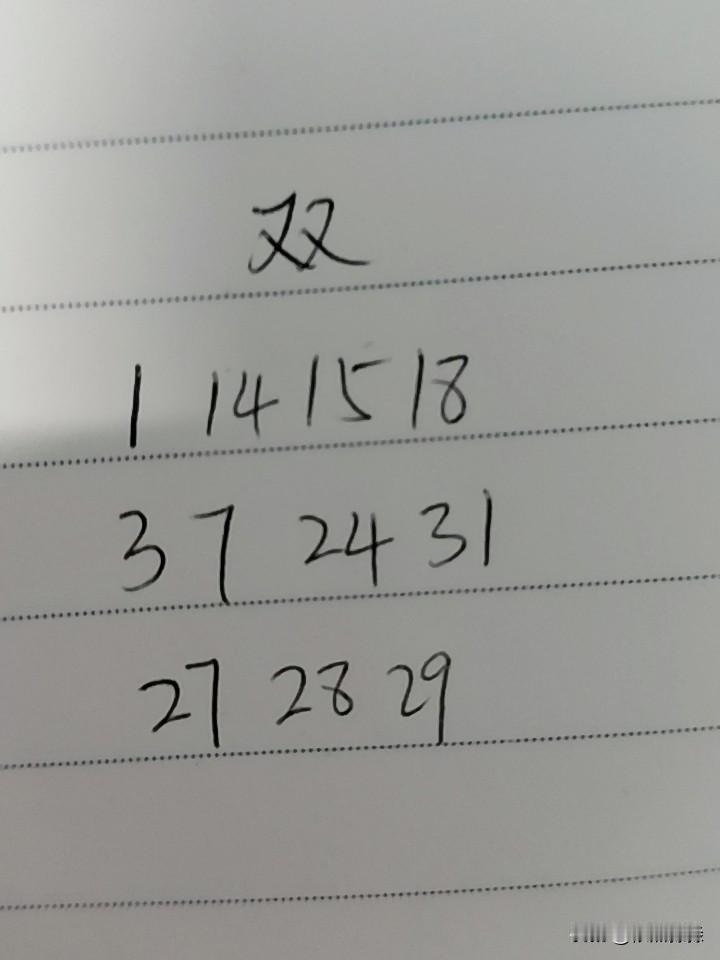 双
1 14 15 18
3 7 24 31
27 28 29